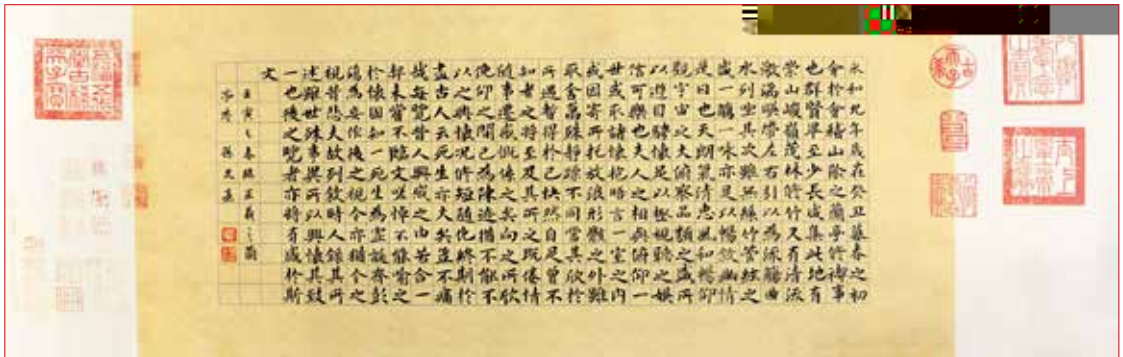 永和九年歲在癸丑暮春之初
會於會稽山陰之蘭亭脩禊事
也群賢畢至少長咸集此地有
崇山峻嶺茂林脩竹又有清流
激湍暎帶左右引以為流觴曲
水列坐其次雖無絲竹管弦之
盛一觴一詠亦足以暢敘幽情
是日也天朗氣清惠風和暢仰
觀宇宙之大俯察品類之盛所
以遊目騁懷足以極視聽之娛
信可樂也夫人之相與俯仰一
世或取諸懷抱悟言一室之內
或因寄所託放浪形骸之外雖
取舍萬殊靜躁不同當其欣於
所遇暫得於己快然自足曾不
知老之將至及其所之既倦情
隨事遷感慨係之矣向之所欣
俛仰之間已為陳迹猶不能不
以之興懷況脩短隨化終期於
盡古人云死生亦大矣豈不痛
哉每覽昔人興感之由若合一
契未嘗不臨文嗟悼不能喻之
於懷固知一死生為虛誕齊彭
殤為妄作後之視今亦猶今之
視昔悲夫故列敘時人錄其所
述雖世殊事異所以興懷其致
一也後之覽者亦將有感於斯
文
壬寅之春臨王羲之蘭
亭序